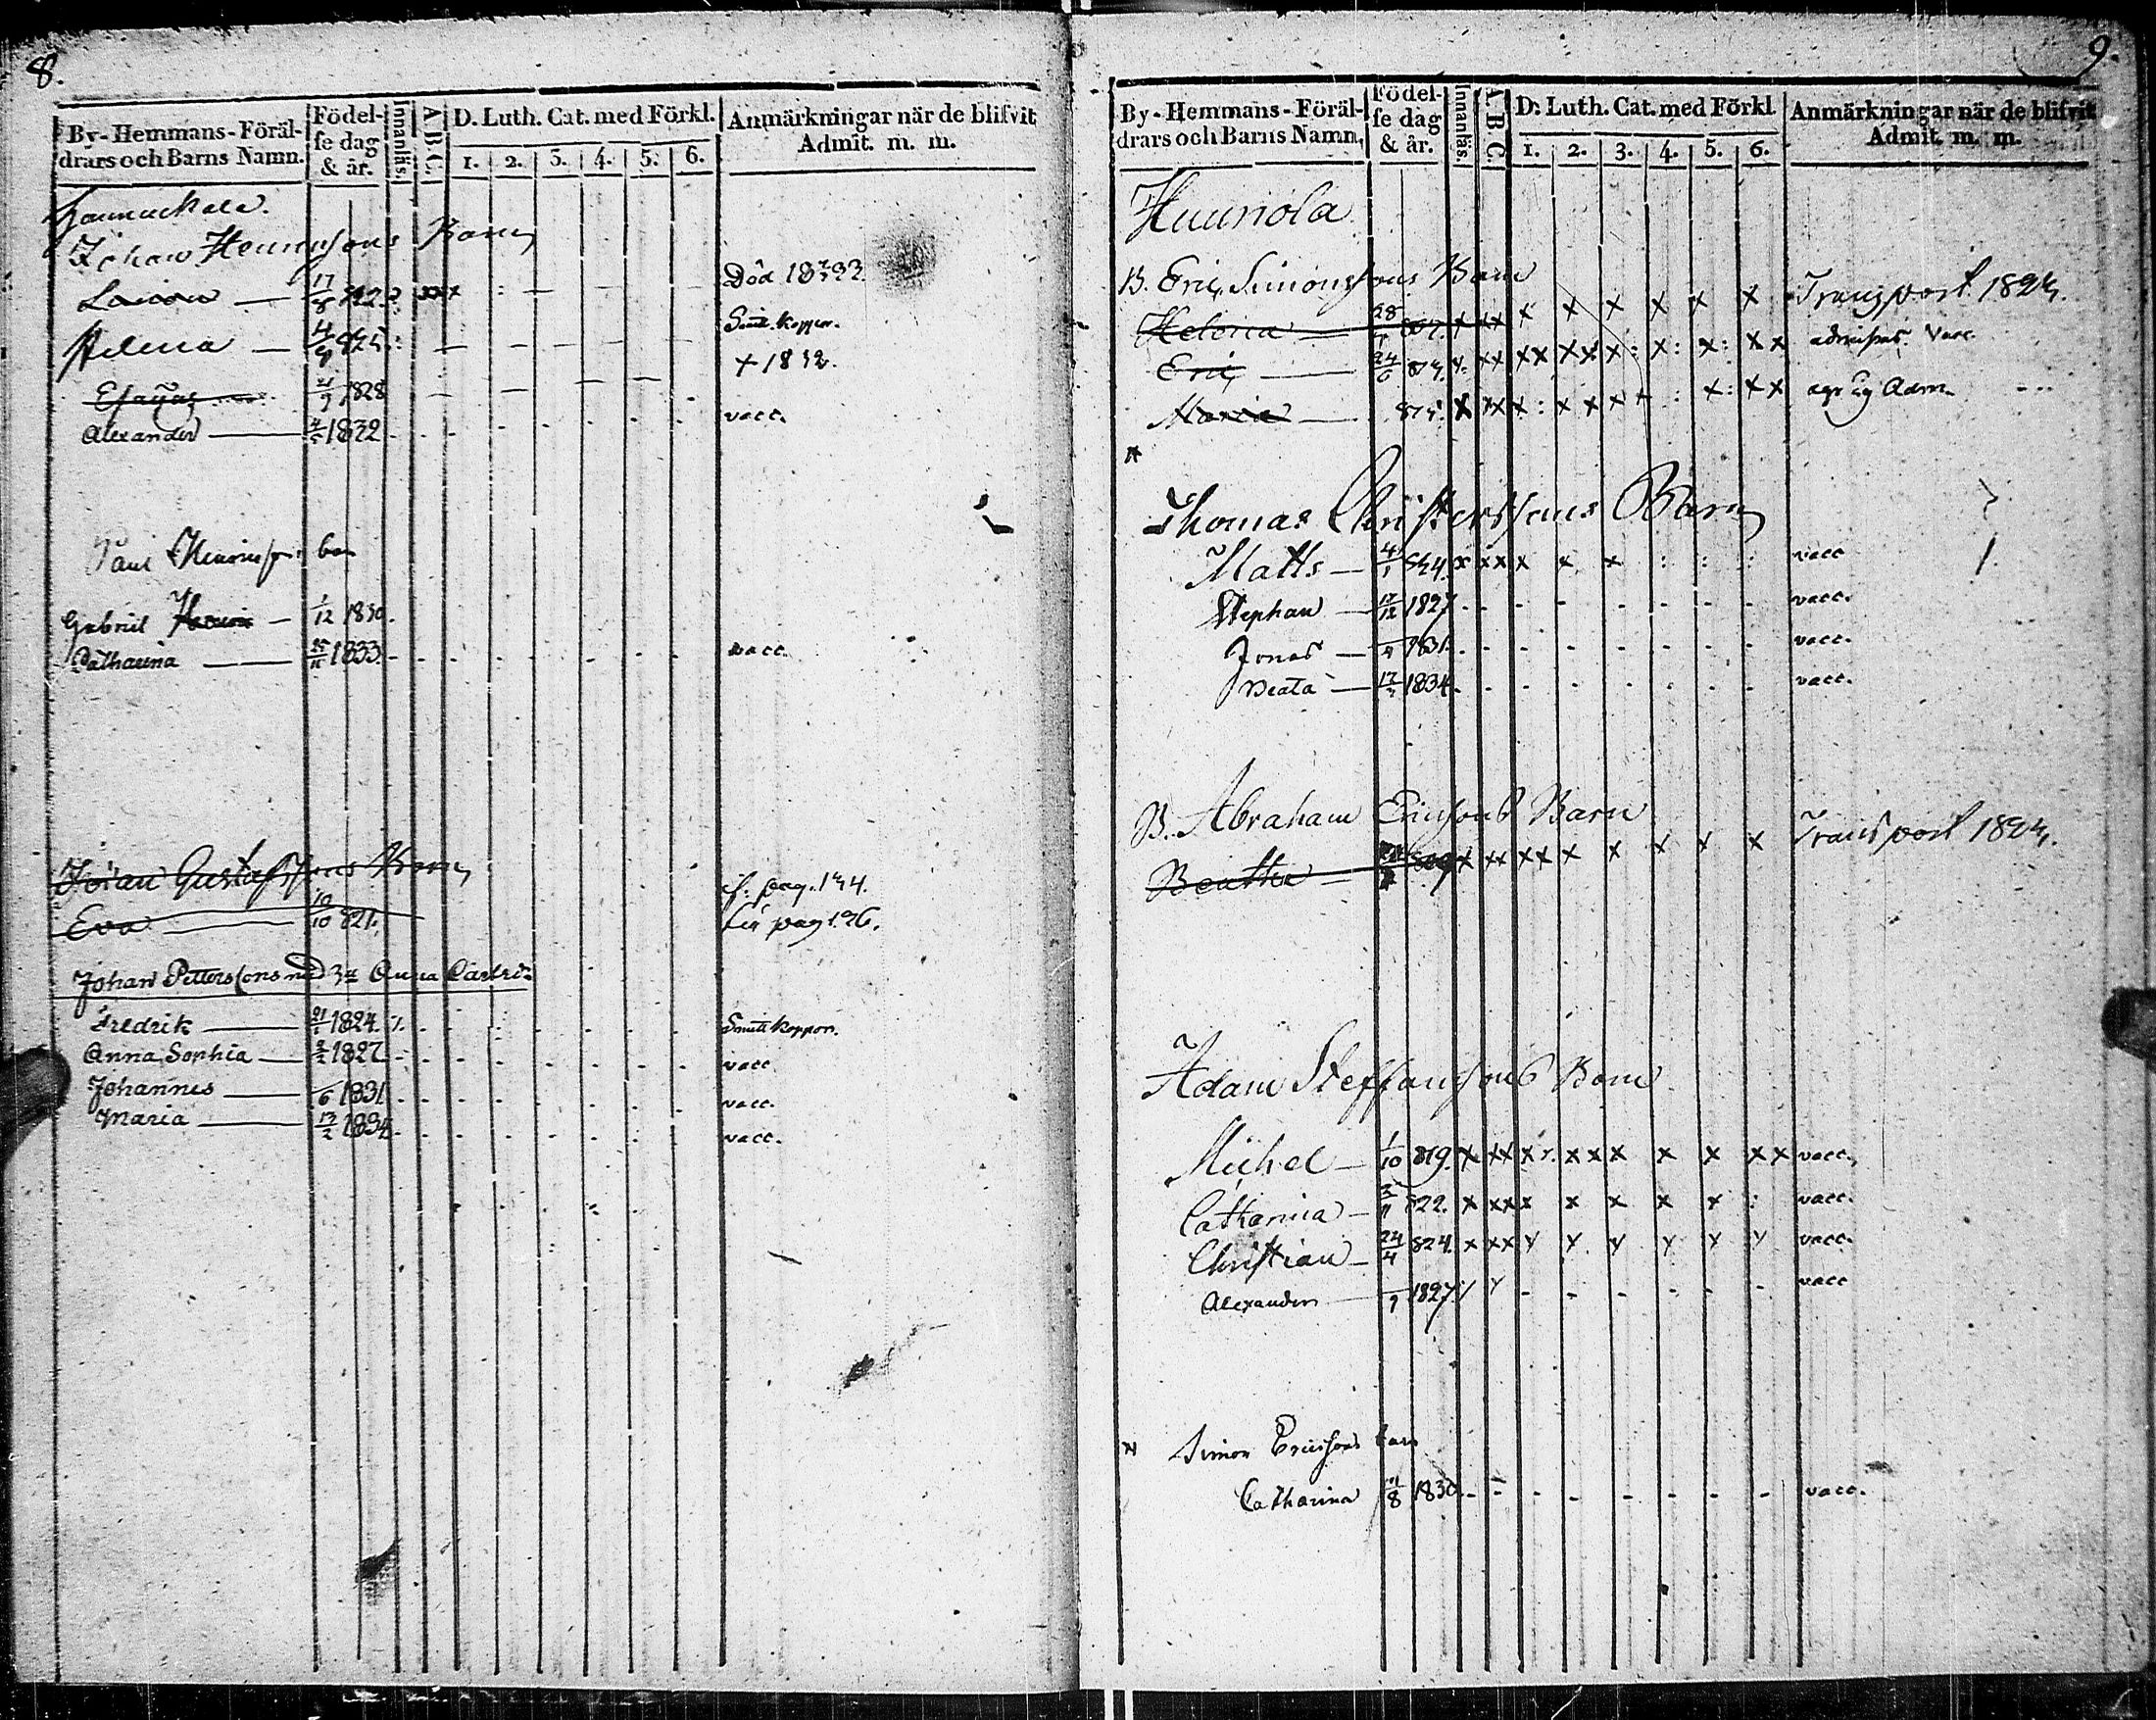 8.
By-Hemmans-Föräl-
drars och Barns Namn.
Födel-
se dag
& år.
Innanläs.
A B C.
D. Luth. Cat. med Förkl.
1. 2. 3. 4. 5. 6.
Anmärkningar när de blifvit
Admit. m. m.
Johan Barn
17/8 822 Död 1833
Helena — 4/9 825. Smit. koppor.
Esaias 1828 + 1832.
Alexander — 1832 vacc.
Paul barn
Gabriel — 1/12 1830.
Catharina — 25/11 1833 vacc.
Jöran Gustafssons Barn f. pag. 134.
Eva — 10/10 821. pag 126.
Johan Petterssons med 3 Anna
Fredrik — 21/1 1824 Smittkoppor.
Anna Sophia — 2/2 1827 vacc.
Johannes — /6 1831 vacc.
Maria — 13/2 1834 vacc.
9.
By-Hemmans-Föräl-
drars och Barns Namn,
Födel-
se dag
& år.
Innanläs.
A. B. C.
D. Luth. Cat. med Förkl
1. 2. 3. 4. 5. 6.
Anmärkningar när de blifvit
Admit. m. m.
Huuriola
B. Eric Simonssons Barn
Helena — 28 807. x xx x x x x x x Transport 1824.
Eric — 24/6 814. xx xx admiss. vacc.
Maria — 815. x xx Adm.
Thomas Christerssons Barn
Matts — 4/1 824. x xx x x x : : : vacc
Stephan — 17/12 1827. vacc.
Jonas — 1831. vacc.
Beata — 17 1834. vacc.
B. Abraham Ericssons Barn
Beatha — 809 x xx xx x x x x x Transport 1824.
Adam Steffanssons Barn
Michel — 1/10 819. x xx x x x xx vacc.
Catharina — 3/11 822. x xx x x x x x : vacc.
Christian — 24/4 824. x xx x x x x x x vacc.
Alexander — /9 1827. vacc
Simon Ericssons barn
Catharina 11/8 1830 vacc.